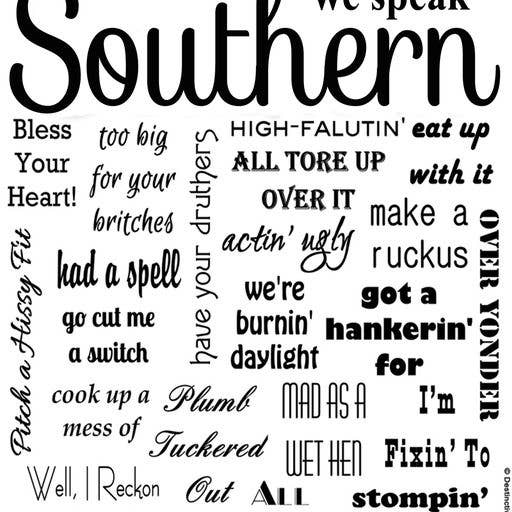 we speak
Southern
Bless
Your
Heart!
too big
for your
britches
have your druthers
HIGH-FALUTIN'
eat up
with it
ALL TORE UP
OVER IT
make a
ruckus
OVER YONDER
actin' ugly
Pitch a Hissy Fit
had a spell
go cut me
a switch
we're
burnin'
daylight
got a
hankerin'
for
cook up a
mess of
Plumb
Tuckered
Out
MAD AS A
WET HEN
I'm
Fixin' To
Well, I Reckon
ALL
stompin'